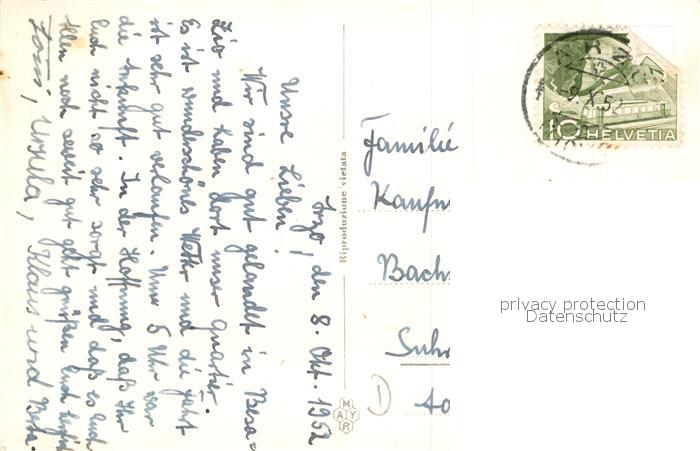 Irzo, den 8. Okt. 1952
Unsre Lieben!
Wir sind gut gelandet in Besa=
zio und haben dort unser Quartier.
Es ist wunderschönes Wetter und die Fahrt
ist sehr gut verlaufen. Um 5 Uhr war
die Ankunft. In der Hoffnung, daß Ihr
Euch nicht so sehr sorgt und daß es Euch
Allen noch soweit gut geht grüßen Euch herzlich
Ursula, Klaus und Berta.
Riproduzione vietata
MAYR
Familie
Kaufm
Bachs
Suhr
D
HELVETIA
10
8.X.52
privacy protection
Datenschutz